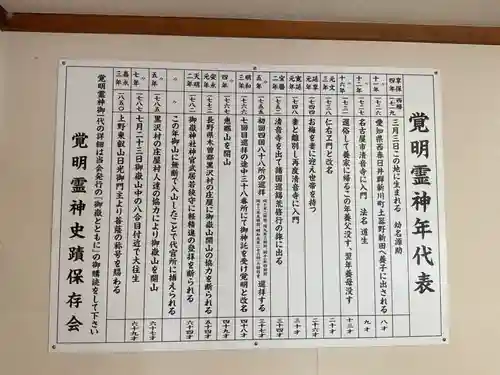 覚明霊神年代表
享保四年 西暦一七一九 三月三日この地に生まれる 幼名源助
〃十一年 一七二六 愛知県西春日井郡新川町土器野新田へ養子に出される 八才
〃十二年 一七二七 名古屋市清音寺に入門 法名 道生 九才
〃十六年 一七三一 還俗して養家に帰るこの年養父没す、翌年養母没す 十三才
元文三年 一七三八 仁右ヱ門と改名 二十才
延享元年 一七四四 お梅を妻に迎え世帯を持つ 二十六才
寛延元年 一七四八 妻と離別し再度清音寺に入門 三十才
宝暦二年 一七五二 清音寺を出て諸国巡錫荒修行の旅に出る 三十四才
〃五年 一七五五 初回四国八十八ケ所の巡拝 巡拝する 三十七才
明和三年 一七六六 七回目巡拝の途中三十八番所にて御神託を受け覚明と改名
〃四年 一七六七 恵那山を開山 四十九才
安永元年 一七七二 長野県木曽郡黒沢村の庄屋に御嶽山開山の協力を断られる 五十四才
天明二年 一七八二 御嶽神社神官武居若狭守に軽精進の登拝を断られる 六十四才
〃 〃 この年山に無断で入山したことで代官所に捕えられる
〃五年 一七八五 黒沢村の庄屋村人達の協力により御嶽山を開山 六十七才
〃六年 一七八六 七月二十三日御嶽山中の八合目付近で大往生
嘉永三年 一八五〇 上野東叡山日光御門主より菩薩の称号を賜わる 六十九才
覚明霊神御一代の詳細は当会発行の「御嶽とともに」の御購読をして下さい
覚明霊神史蹟保存会